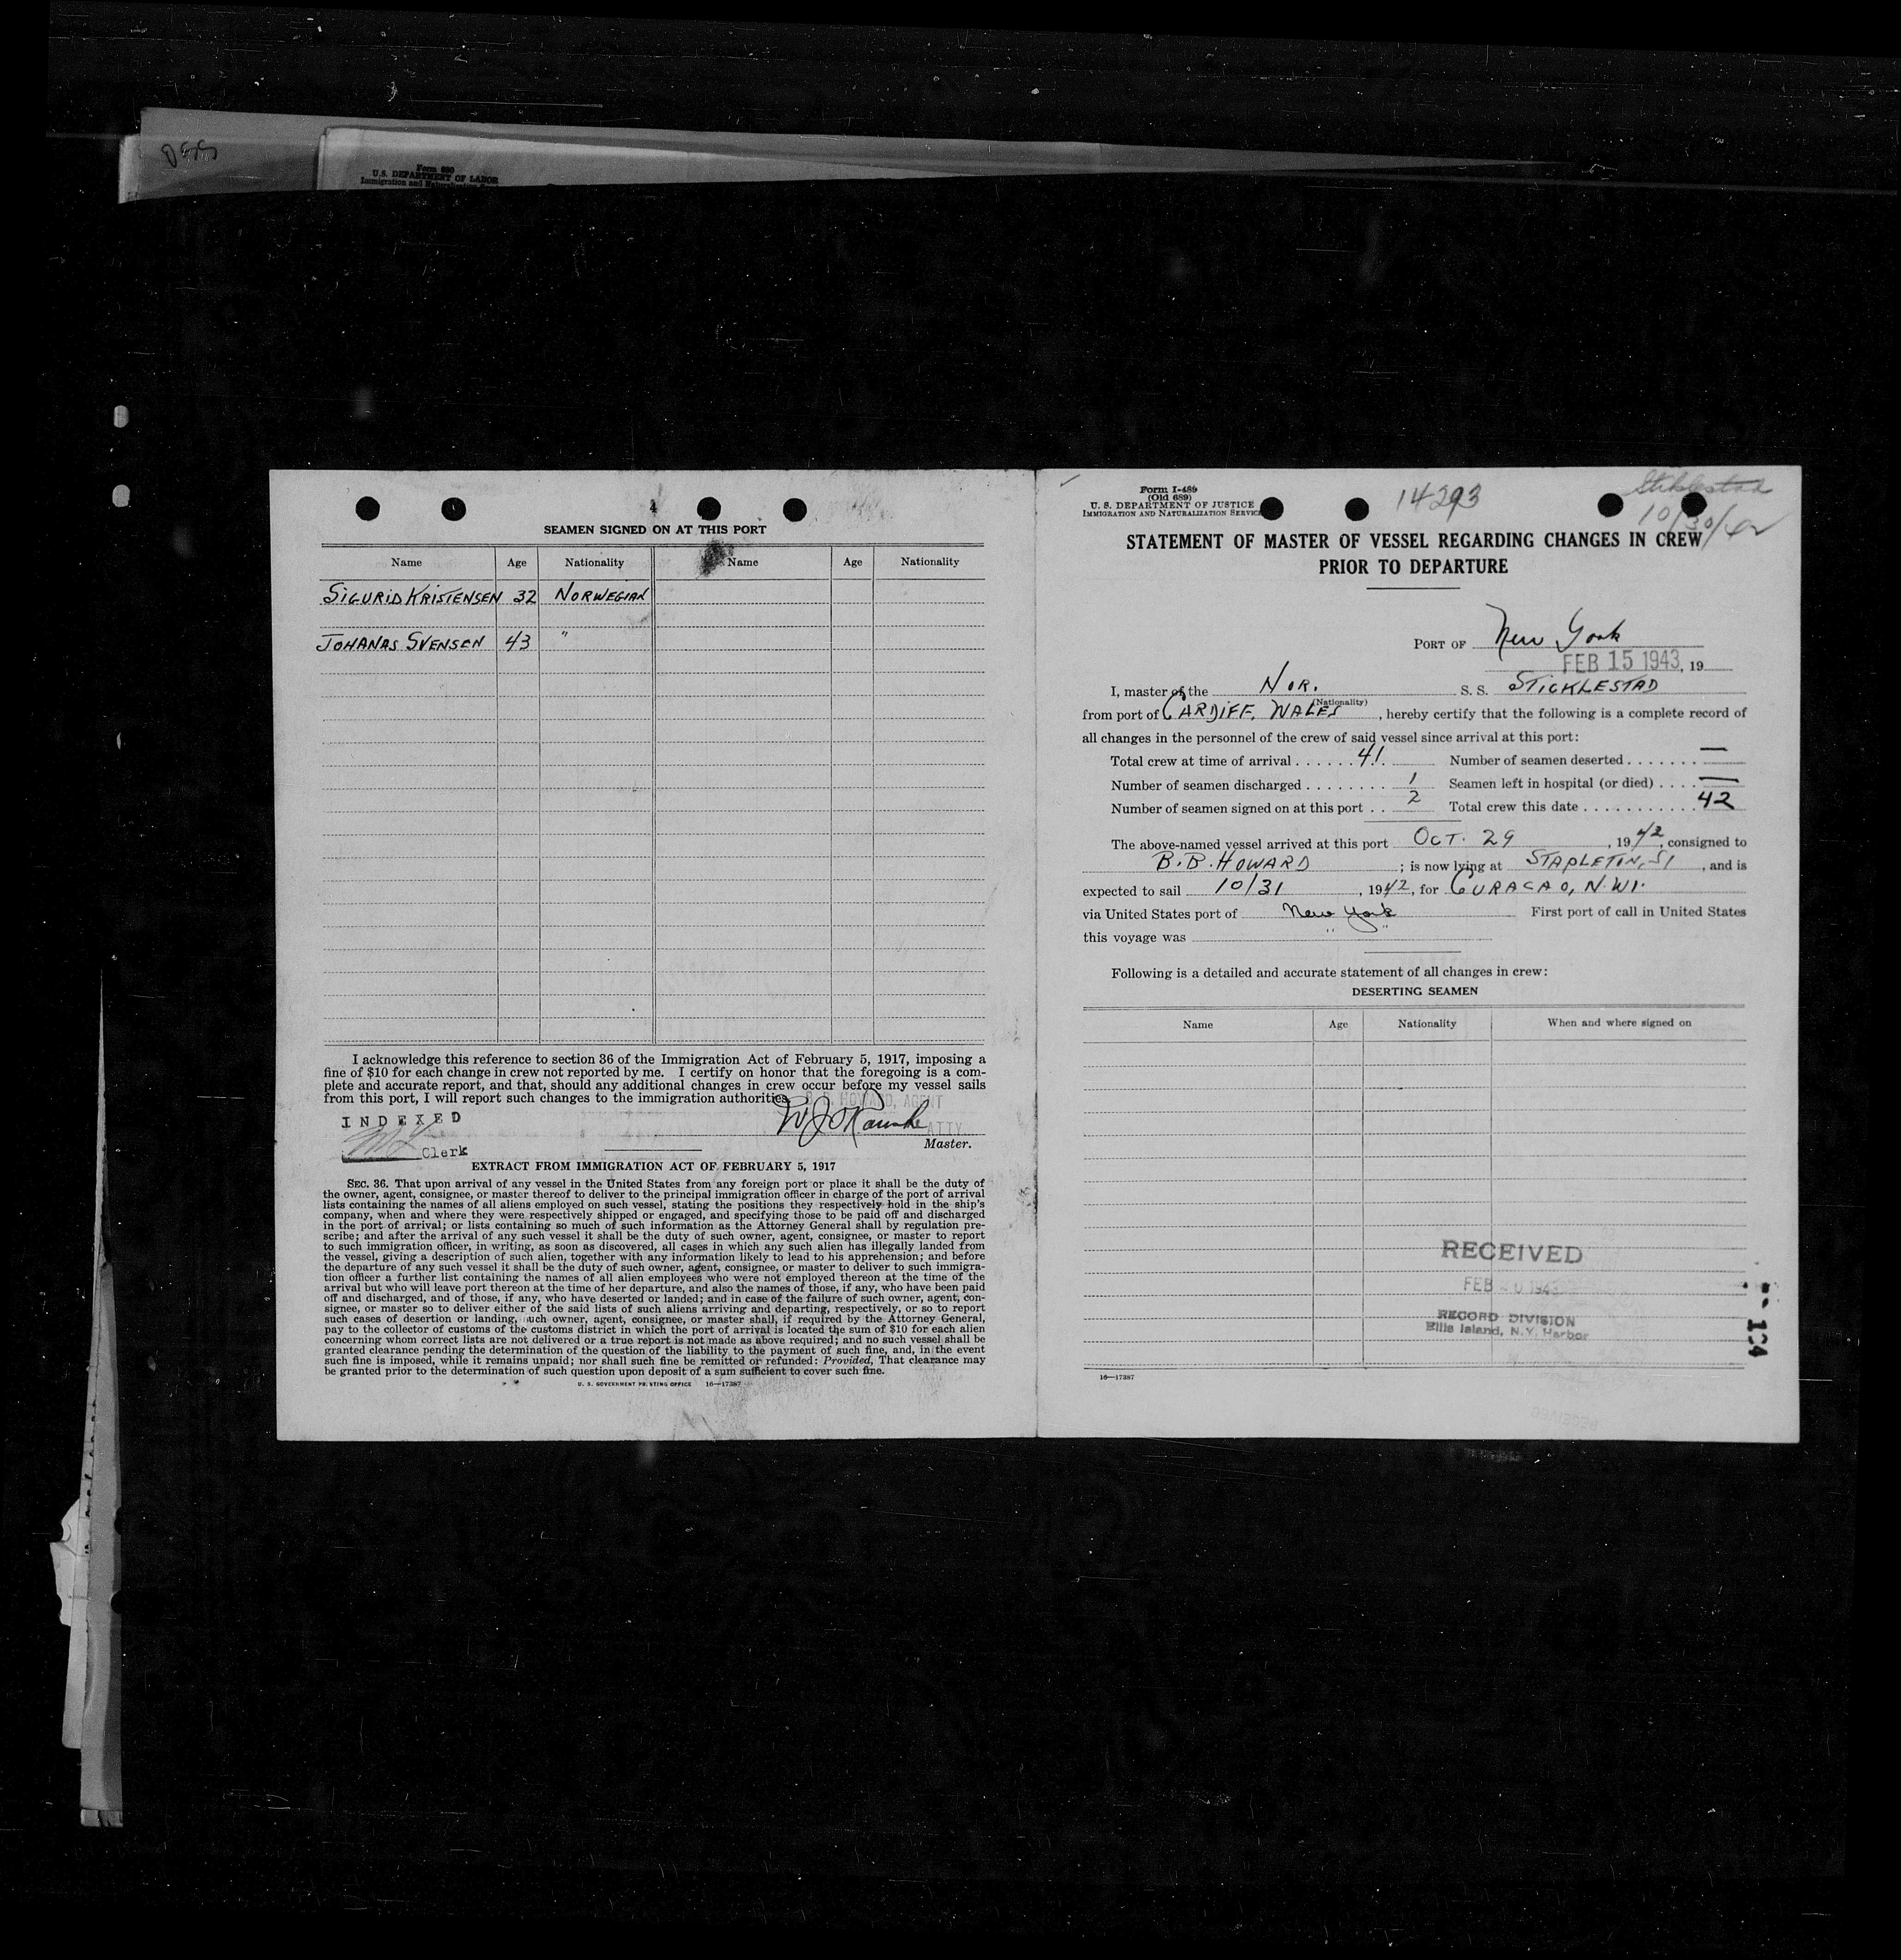 Form 680
U.S. DEPARTMENT OF LABOR
Immigration and
4
SEAMEN SIGNED ON AT THIS PORT
Name Age Nationality Name Age Nationality
SIGURID KRISTENSEN 32 NORWEGIAN
JOHANAS SVENSEN 43 "
I acknowledge this reference to section 36 of the Immigration Act of February 5, 1917, imposing a
fine of $10 for each change in crew not reported by me. I certify on honor that the foregoing is a com-
plete and accurate report, and that, should any additional changes in crew occur before my vessel sails
from this port, I will report such changes to the immigration authorities.
B. B. HOWARD, AGENT
INDEXED
ATTY
Master.
Clerk
EXTRACT FROM IMMIGRATION ACT OF FEBRUARY 5, 1917
SEC. 36. That upon arrival of any vessel in the United States from any foreign port or place it shall be the duty of
the owner, agent, consignee, or master thereof to deliver to the principal immigration officer in charge of the port of arrival
lists containing the names of all aliens employed on such vessel, stating the positions they respectively hold in the ship's
company, when and where they were respectively shipped or engaged, and specifying those to be paid off and discharged
in the port of arrival; or lists containing so much of such information as the Attorney General shall by regulation pre-
scribe; and after the arrival of any such vessel it shall be the duty of such owner, agent, consignee, or master to report
to such immigration officer, in writing, as soon as discovered, all cases in which any such alien has illegally landed from
the vessel, giving a description of such alien, together with any information likely to lead to his apprehension; and before
the departure of any such vessel it shall be the duty of such owner, agent, consignee, or master to deliver to such immigra-
tion officer a further list containing the names of all alien employees who were not employed thereon at the time of the
arrival but who will leave port thereon at the time of her departure, and also the names of those, if any, who have been paid
off and discharged, and of those, if any, who have deserted or landed; and in case of the failure of such owner, agent, con-
signee, or master so to deliver either of the said lists of such aliens arriving and departing, respectively, or so to report
such cases of desertion or landing, such owner, agent, consignee, or master shall, if required by the Attorney General,
pay to the collector of customs of the customs district in which the port of arrival is located the sum of $10 for each alien
concerning whom correct lists are not delivered or a true report is not made as above required; and no such vessel shall be
granted clearance pending the determination of the question of the liability to the payment of such fine, and, in the event
such fine is imposed, while it remains unpaid; nor shall such fine be remitted or refunded: Provided, That clearance may
be granted prior to the determination of such question upon deposit of a sum sufficient to cover such fine.
U. S. GOVERNMENT PRINTING OFFICE 16—17387
Form I-489
(Old 689)
U. S. DEPARTMENT OF JUSTICE
IMMIGRATION AND NATURALIZATION SERVICE
14293
Stiklestad
10/30/42
STATEMENT OF MASTER OF VESSEL REGARDING CHANGES IN CREW
PRIOR TO DEPARTURE
PORT OF New York
FEB 15 1943, 19
I, master of the NOR. S. S. STICKLESTAD
(Nationality)
from port of CARDIFF, WALES, hereby certify that the following is a complete record of
all changes in the personnel of the crew of said vessel since arrival at this port:
Total crew at time of arrival . . . . . . 41. Number of seamen deserted . . . . . . . —
Number of seamen discharged . . . . . . . . 1 Seamen left in hospital (or died) . . . . —
Number of seamen signed on at this port . . 2 Total crew this date . . . . . . . . . . . 42
The above-named vessel arrived at this port OCT. 29, 1942, consigned to
B. B. HOWARD; is now lying at STAPLETIN, SI, and is
expected to sail 10/31, 1942, for CURACAO, N.WI.
via United States port of New York First port of call in United States
this voyage was " "
Following is a detailed and accurate statement of all changes in crew:
DESERTING SEAMEN
Name Age Nationality When and where signed on
RECEIVED
FEB 20 1943
RECORD DIVISION
Ellis Island, N.Y. Harbor
16—17387